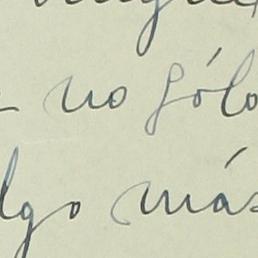 - no sólo
lgo más